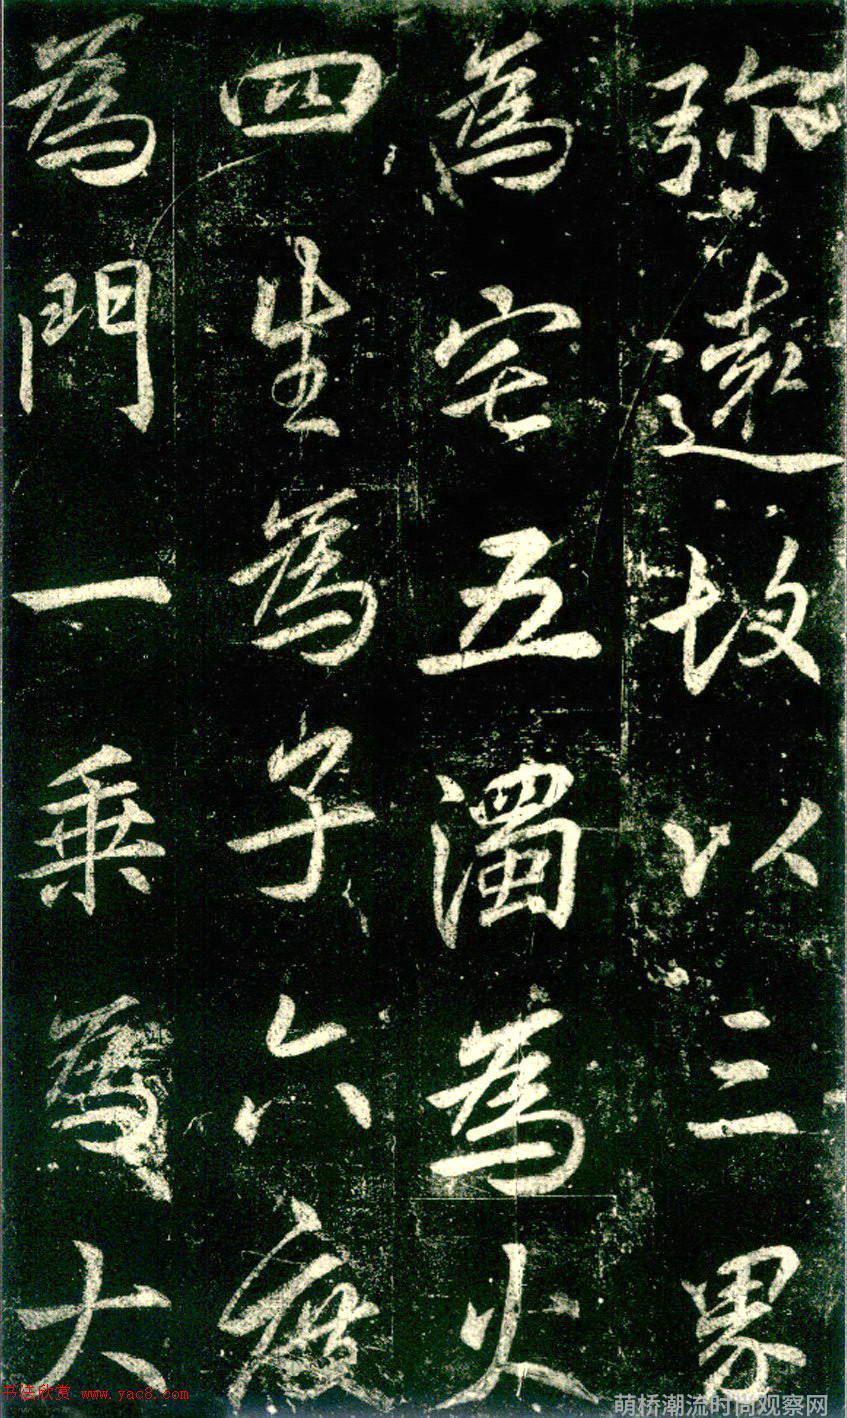 弥遠故以三界
為宅五濁為火
四生為子六度
為門一乗為大
书法欣赏 www.yac8.com
萌桥潮流时尚观察网